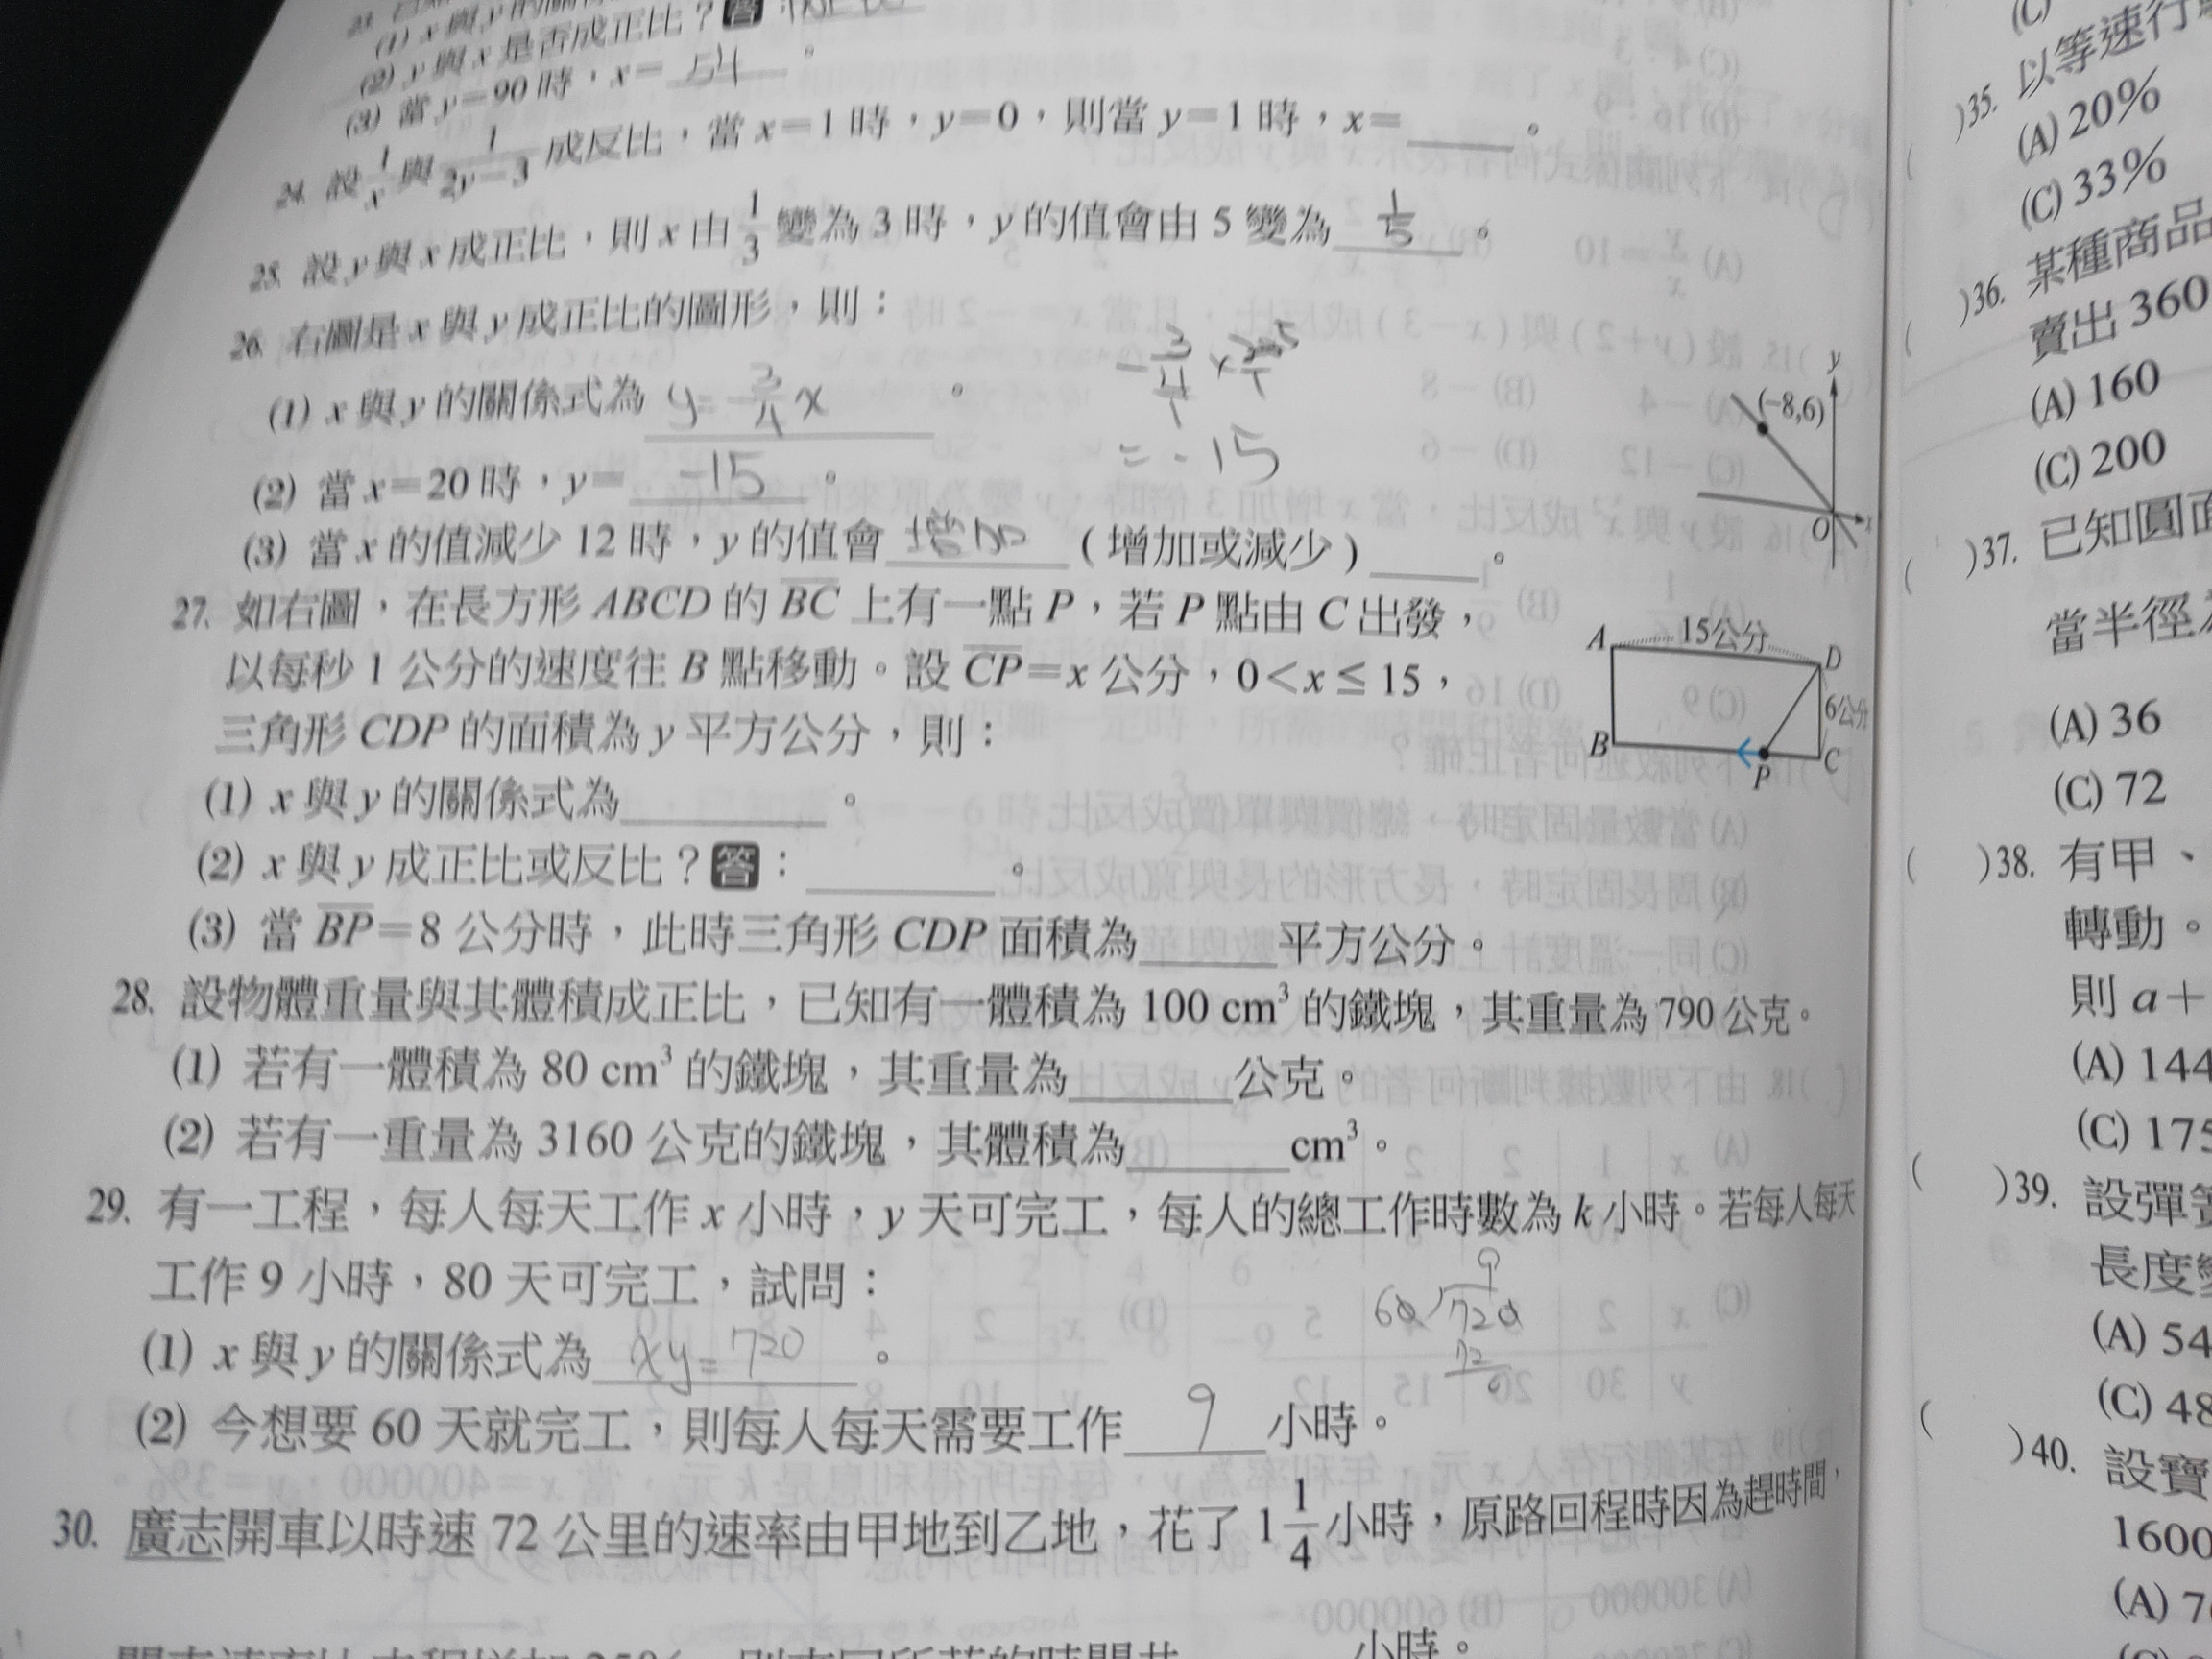 (1) x 與 y 的關
(2) y 與 x 是否成正比？答：
(3) 當 y=90 時，x= 54 。
24. 設 1/x 與 1/(2y-3) 成反比，當 x=1 時，y=0，則當 y=1 時，x=____。
25. 設 y 與 x 成正比，則 x 由 1/3 變為 3 時，y 的值會由 5 變為 1/5 。
26. 右圖是 x 與 y 成正比的圖形，則：
(1) x 與 y 的關係式為 y=-3/4x 。
(2) 當 x=20 時，y= -15 。
(3) 當 x 的值減少 12 時，y 的值會 增加 (增加或減少)____。
=-15
y
(-8,6)
O
x
27. 如右圖，在長方形 ABCD 的 BC 上有一點 P，若 P 點由 C 出發，
以每秒 1 公分的速度往 B 點移動。設 CP=x 公分，0<x≦15，
三角形 CDP 的面積為 y 平方公分，則：
(1) x 與 y 的關係式為____。
(2) x 與 y 成正比或反比？答：____。
(3) 當 BP=8 公分時，此時三角形 CDP 面積為____平方公分。
A 15公分 D
6公分
B P C
28. 設物體重量與其體積成正比，已知有一體積為 100 cm³ 的鐵塊，其重量為 790 公克。
(1) 若有一體積為 80 cm³ 的鐵塊，其重量為____公克。
(2) 若有一重量為 3160 公克的鐵塊，其體積為____cm³。
29. 有一工程，每人每天工作 x 小時，y 天可完工，每人的總工作時數為 k 小時。若每人每天
工作 9 小時，80 天可完工，試問：
(1) x 與 y 的關係式為 xy=720 。
(2) 今想要 60 天就完工，則每人每天需要工作 9 小時。
9
60)720
72
0
30. 廣志開車以時速 72 公里的速率由甲地到乙地，花了 1 1/4 小時，原路回程時因為趕時間，
小時。
(C)
)35. 以等速行
(A) 20%
(C) 33%
( )36. 某種商品
賣出 360
(A) 160
(C) 200
( )37. 已知圓面
當半徑為
(A) 36
(C) 72
( )38. 有甲、
轉動。
則 a+
(A) 144
(C) 175
( )39. 設彈簧
長度變
(A) 54
(C) 48
( )40. 設寶
1600
(A) 7